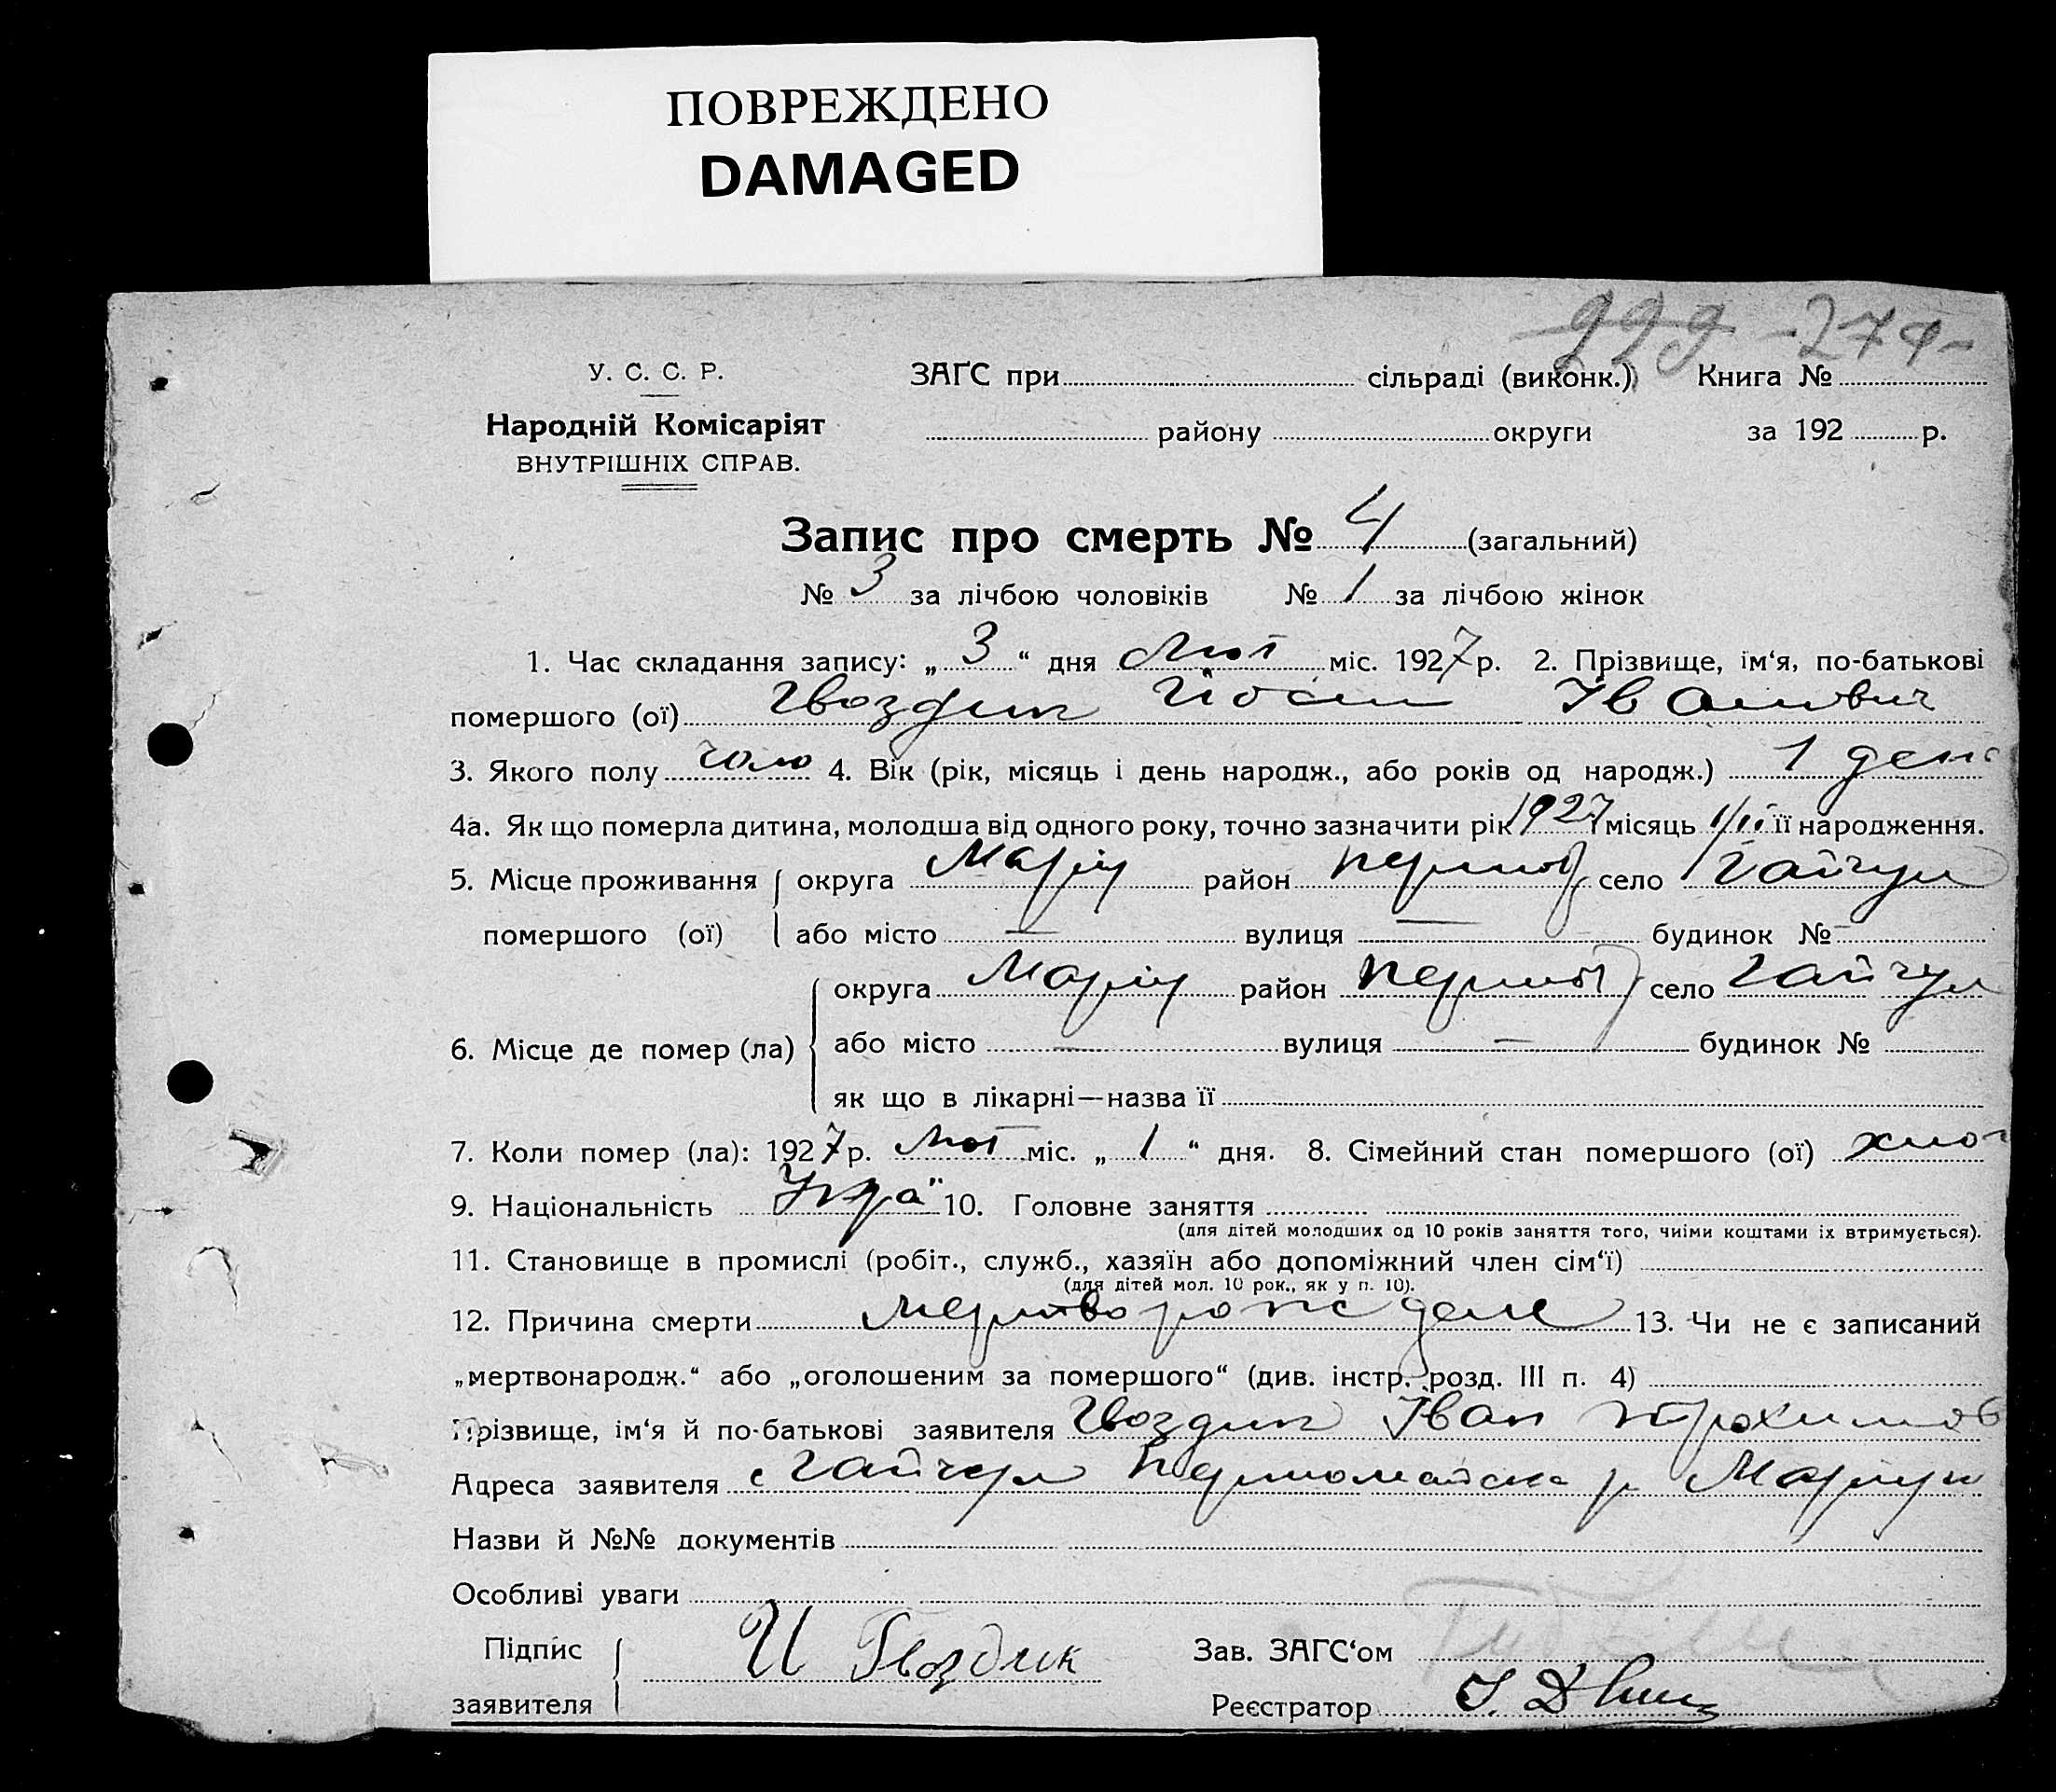 ПОВРЕЖДЕНО
DAMAGED
229 -274-
У. С. С. Р.
ЗАГС при сільраді (виконк.) Книга №
Народній Комісаріят
району округи за 192 р.
ВНУТРІШНІХ СПРАВ.
Запис про смерть № 4 (загальний)
№ 3 за лічбою чоловіків № 1 за лічбою жінок
1. Час складання запису: „ 3 “ дня Лют міс. 1927 р. 2. Прізвище, ім‘я, по-батькові
помершого (ої) Гвоздик Йосип Іванович
3. Якого полу чоло 4. Вік (рік, місяць і день народж., або років од народж.) 1 день
4а. Як що померла дитина, молодша від одного року, точно зазначити рік 1927 місяць 1/II її народження.
5. Місце проживання округа Маріу район Первом село Гайчул
помершого (ої) або місто — вулиця — будинок № —
округа Маріу район Первом село Гайчул
6. Місце де помер (ла) або місто — вулиця — будинок №
як що в лікарні—назва її
7. Коли помер (ла): 1927 р. Лют міс. „ 1 “ дня. 8. Сімейний стан помершого (ої)
9. Національність Укра" 10. Головне заняття
(для дітей молодших од 10 років заняття того, чиїми коштами їх втримується).
11. Становище в промислі (робіт., служб., хазяїн або допоміжний член сім‘ї)
(для дітей мол. 10 рок., як у п. 10).
12. Причина смерти мертворожде 13. Чи не є записаний
„мертвонародж.“ або „оголошеним за помершого“ (див. інстр. розд. III п. 4)
Прізвище, ім‘я й по-батькові заявителя Гвоздик Іван Трохимов
Адреса заявителя с Гайчул Первомайска р Маріуп
Назви й №№ документів
Особливі уваги
Підпис И Гвоздик Зав. ЗАГС‘ом
заявителя Реєстратор